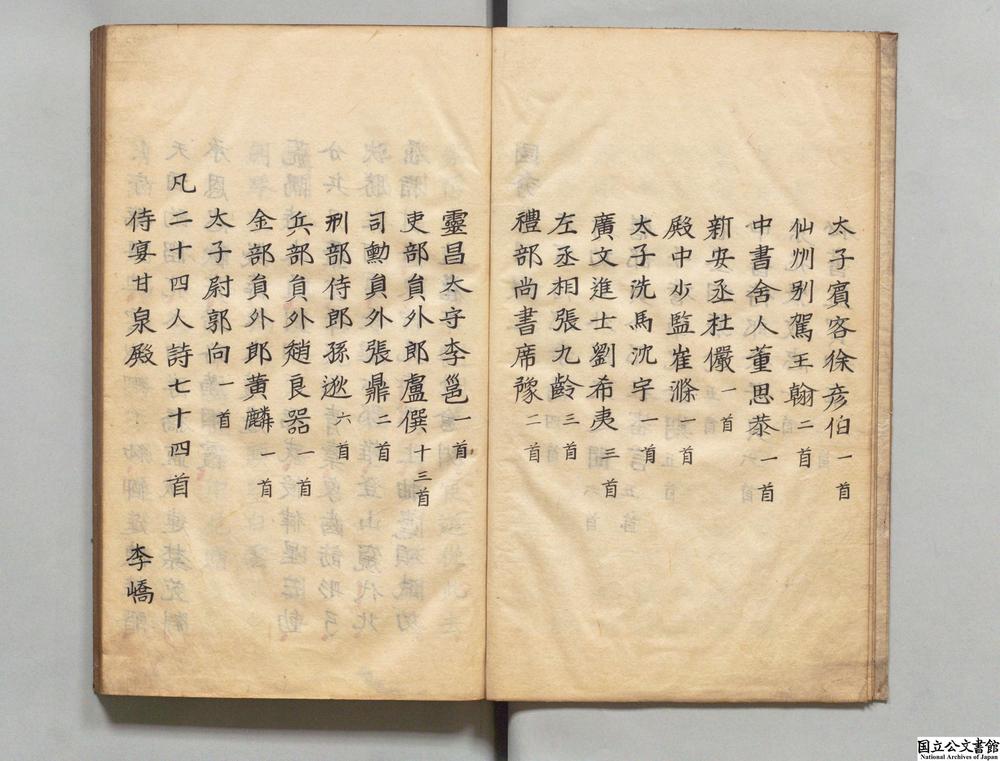 太子賓客徐彦伯一首
仙州别駕王翰二首
中書舍人董思恭一首
新安丞杜儼一首
殿中少監崔滌一首
太子洗馬沈宇一首
廣文進士劉希夷三首
左丞相張九齡三首
禮部尚書席豫二首
靈昌太守李邕一首
吏部負外郎盧僎十三首
司勲負外張鼎二首
刑部侍郎孫逖六首
兵部負外趙良器一首
金部負外郎黄麟一首
太子尉郭向一首
凡二十四人詩七十四首
侍宴甘泉殿 李嶠
国立公文書館
National Archives of Japan